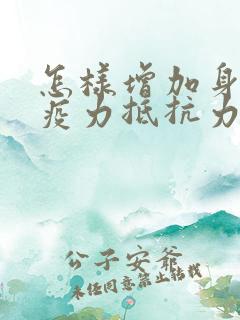 怎样增加身
疫力抵抗力
公子安爷
未经同意禁止转载